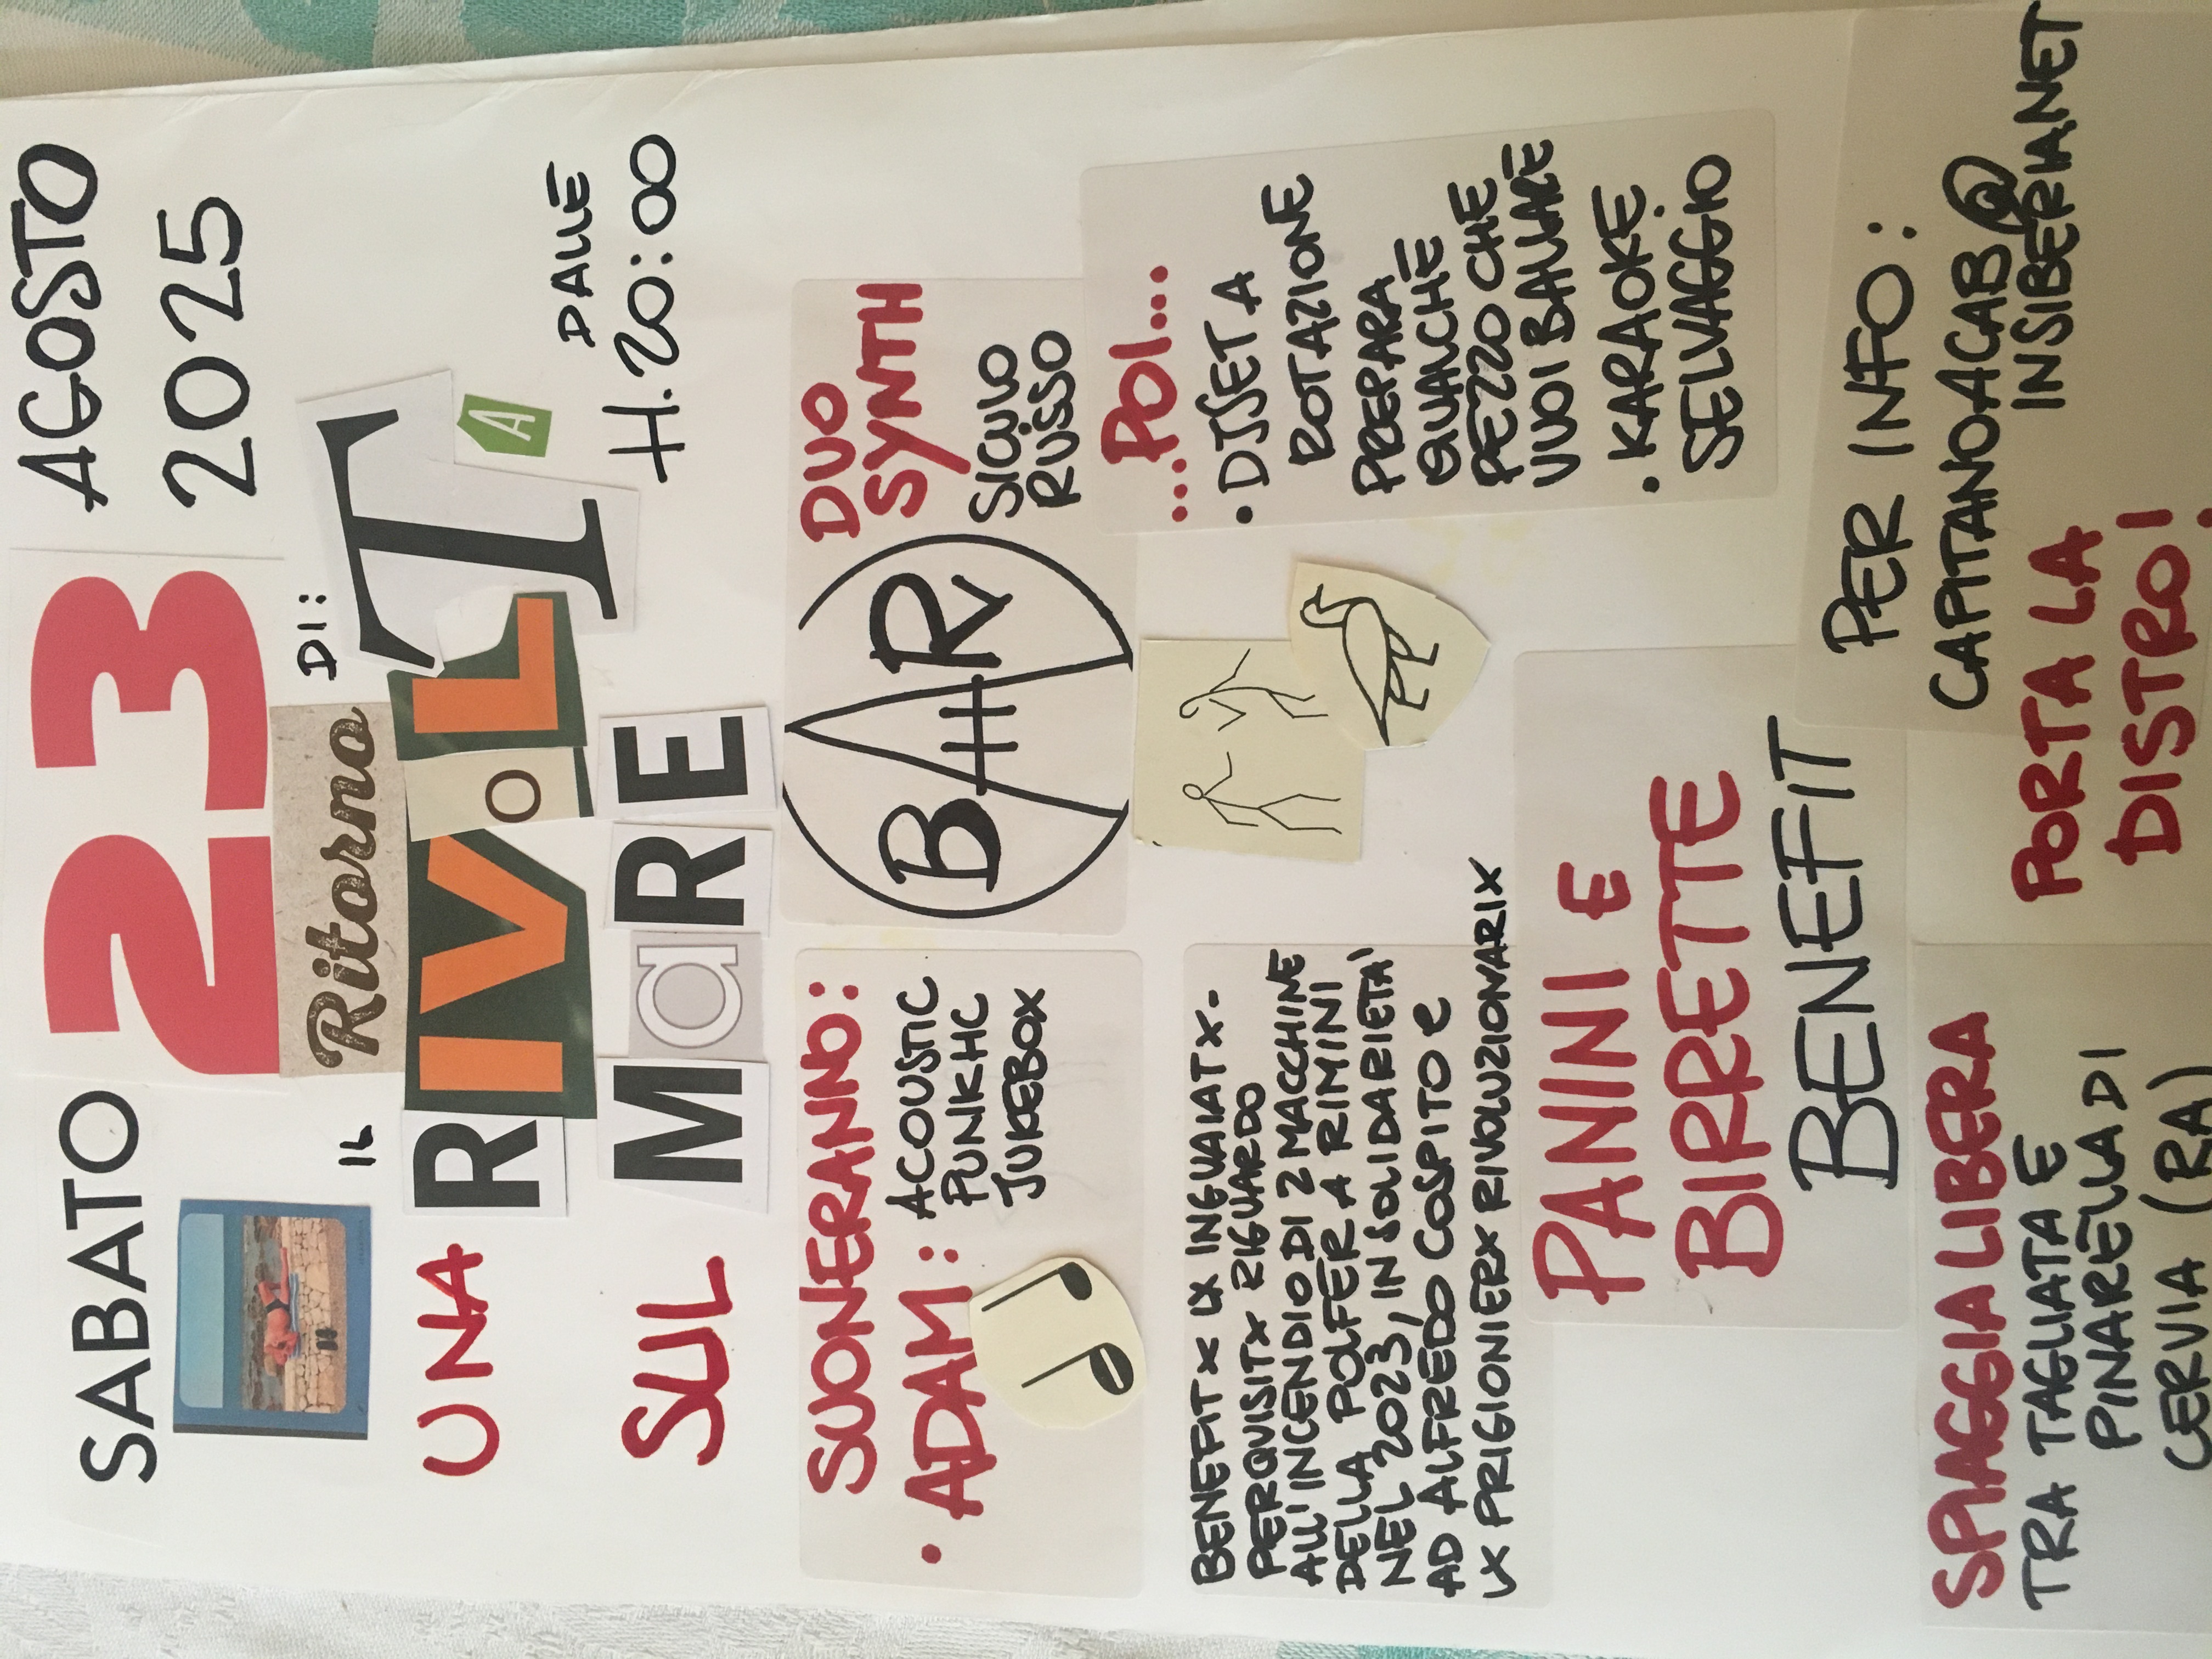 SABATO 23 AGOSTO
2025
IL Ritorno DI:
UNA RIVoLTA
DALLE
H. 20:00
SUL MaRE
SUONERANNO:
• ADAM: ACOUSTIC
PUNKHC
JUKEBOX
BAR
DUO
SYNTH
SICULO
RUSSO
BENEFIT X LX INGUAIATX-
PERQUISITX RIGUARDO
ALL'INCENDIO DI 2 MACCHINE
DELLA POLFER A RIMINI
NEL 2023, IN SOLIDARIETA'
AD ALFREDO COSPITO e
LX PRIGIONIERX RIVOLUZIONARIX
...POI...
• DJSET A
ROTAZIONE
PREPARA
QUALCHE
PEZZO CHE
VUOI BALLARE
• KARAOKE
SELVAGGIO
PANINI E
BIRRETTE
BENEFIT
PER INFO:
CAPITANOACAB@
INSIBERIA.NET
SPIAGGIA LIBERA
TRA TAGLIATA E
PINARELLA DI
CERVIA (RA)
PORTA LA
DISTRO!